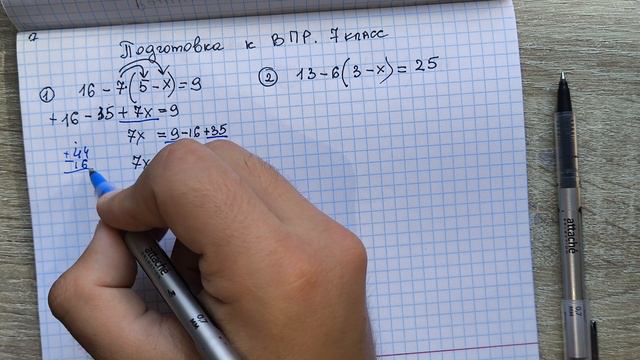 Подготовка к ВПР. 7 класс
① 16 - 7(5 - x) = 9
+16 - 35 + 7x = 9
7x = 9 - 16 + 35
7x
44
- 16
② 13 - 6(3 - x) = 25
attaché
0,7 мм
attaché
0,7 мм